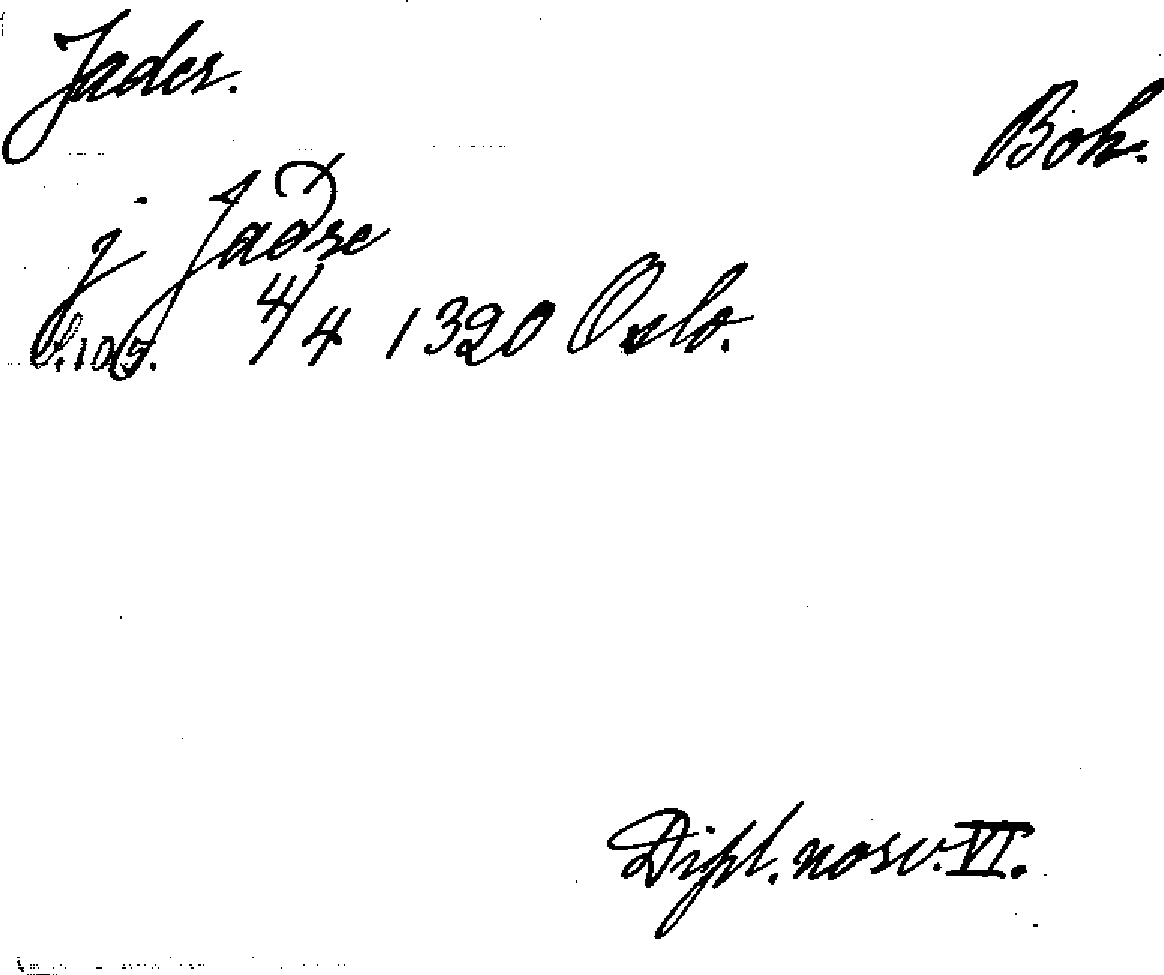 Jader.
Boh.
j Jaðre
S. 105. 4/4 1320 Oslo.
Dipl. norv. VI.